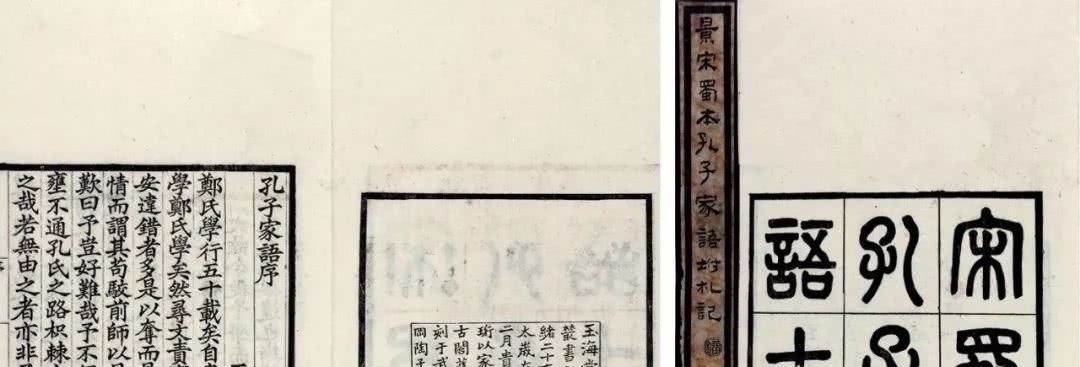 宋蜀
孔子
語十
景宋蜀本孔子家語坿札記
玉海堂
叢書
緒二十
太歲在
二月貴
珩以家
古閣舊
刻于武
岡陶子
孔子家語序
鄭氏學行五十載矣自
學鄭氏學矣然尋文責
安違錯者多是以奪而
情而謂其苟駮前師以
歎曰予豈好難哉予不
壅不通孔氏之路枳棘
之哉若無由之者亦非